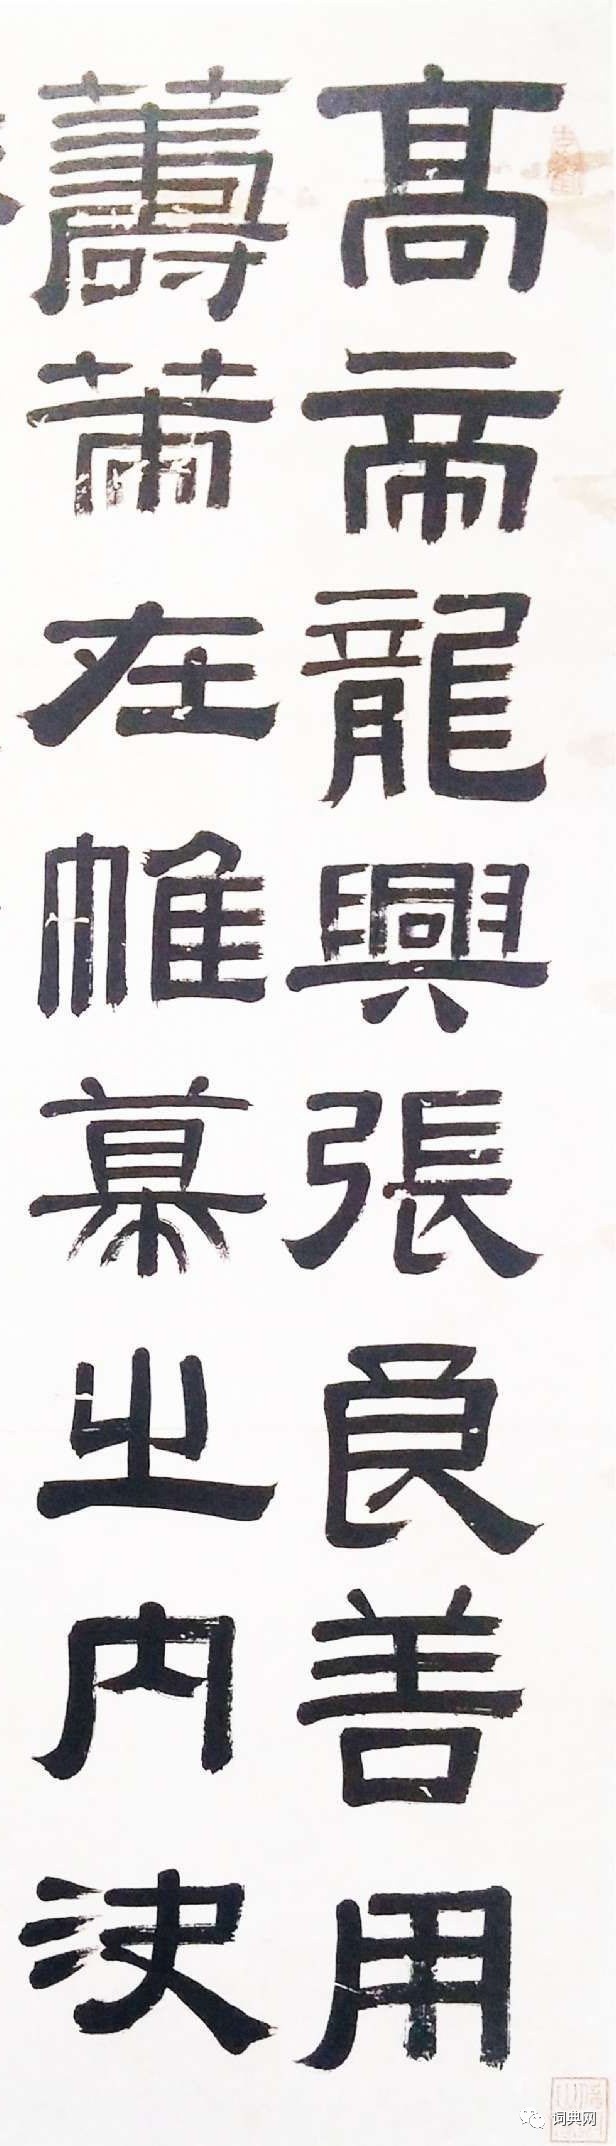 高帝龍興張良善用
籌策在帷幕之内決
词典网